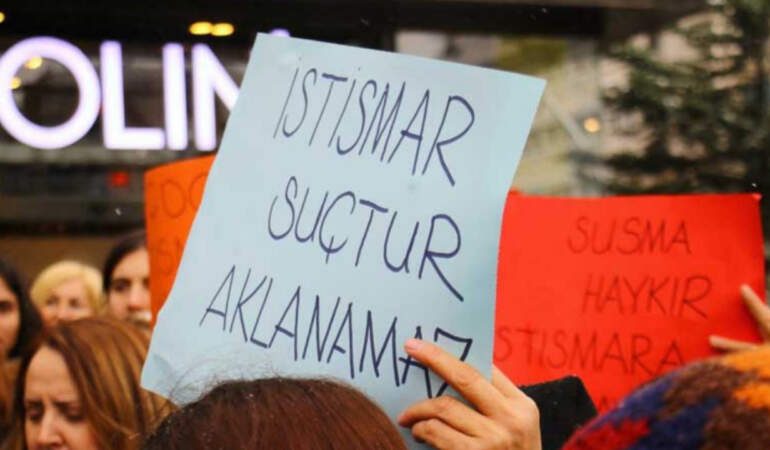 OLIN
İSTİSMAR
SUÇTUR
AKLANAMAZ
SUSMA
HAYKIR
İSTİSMARA